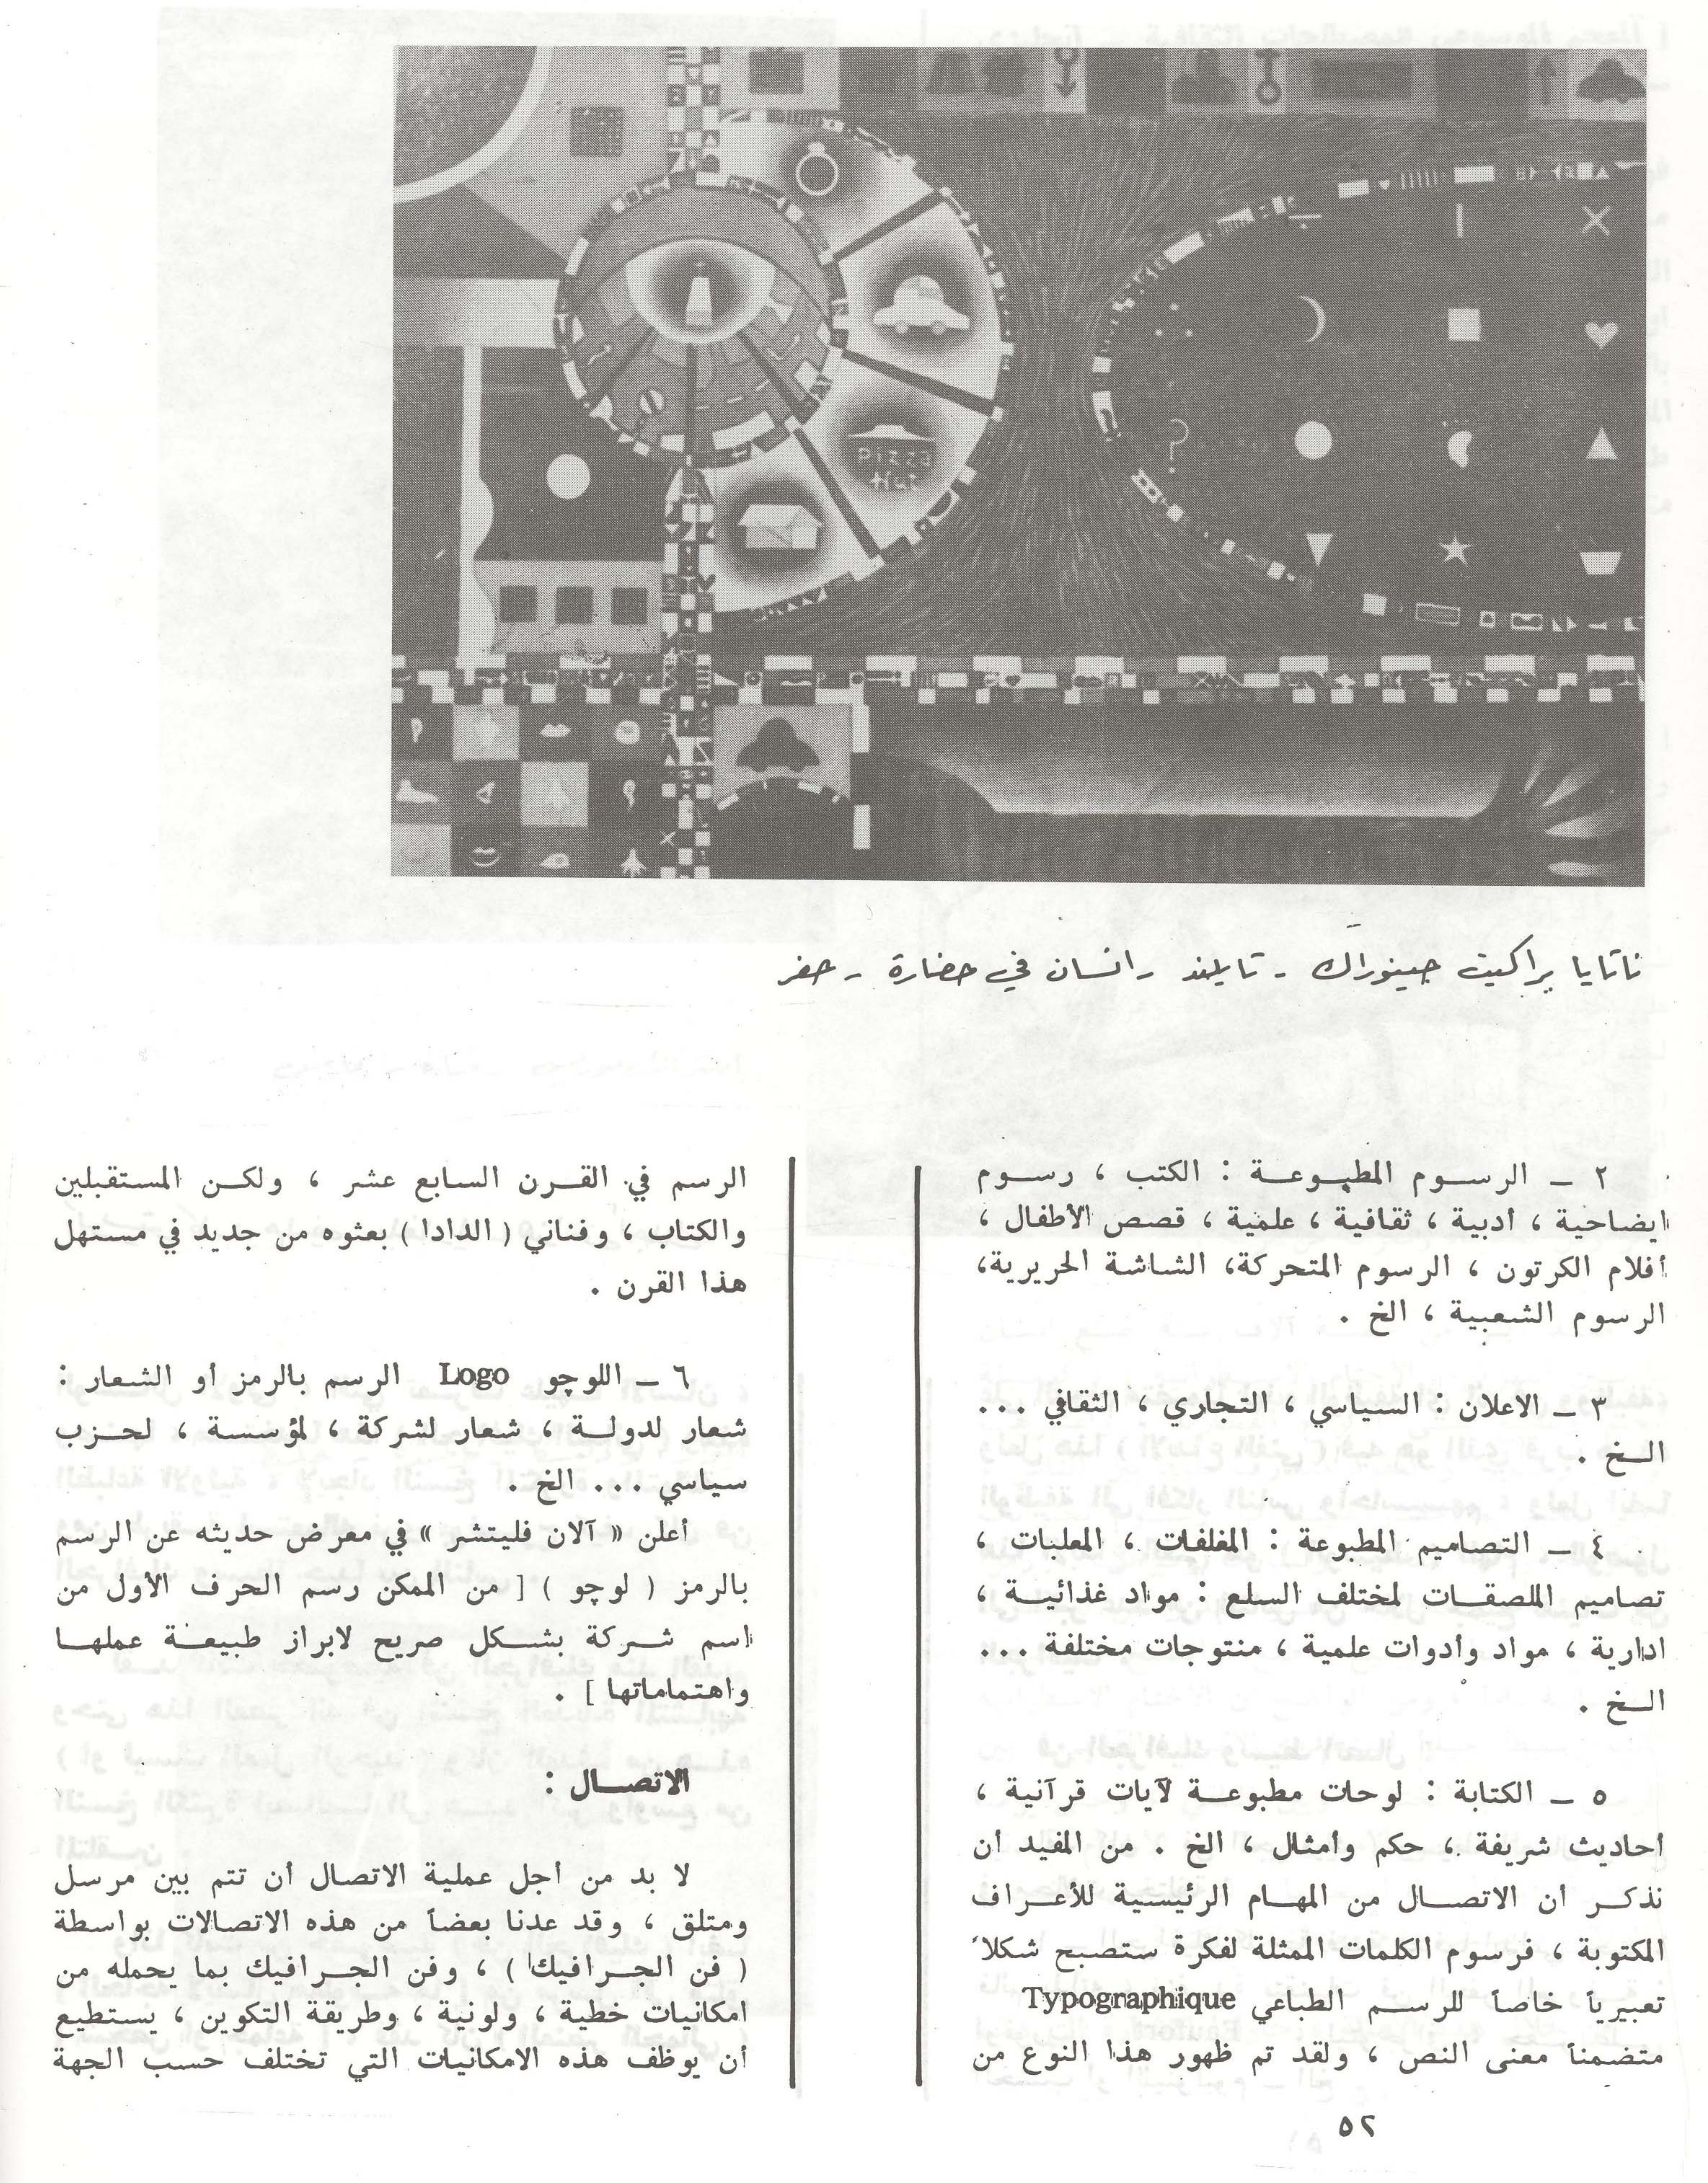 Pizza
Hut
ناتايا براكيت جينوراك - تايلند - انسان في حضارة - حفر
٢ – الرسوم المطبوعة : الكتب ، رسوم
ايضاحية ، أدبية ، ثقافية ، علمية ، قصص الأطفال ،
أفلام الكرتون ، الرسوم المتحركة، الشاشة الحريرية،
الرسوم الشعبية ، الخ .
٣ – الاعلان : السياسي ، التجاري ، الثقافي ...
الخ .
٤ – التصاميم المطبوعة : المغلفات ، المعلبات ،
تصاميم الملصقات لمختلف السلع : مواد غذائية ،
ادارية ، مواد وأدوات علمية ، منتوجات مختلفة ...
الخ .
٥ – الكتابة : لوحات مطبوعة لآيات قرآنية ،
أحاديث شريفة ، حكم وأمثال ، الخ . من المفيد أن
نذكر أن الاتصال من المهام الرئيسية للأعراف
المكتوبة ، فرسوم الكلمات الممثلة لفكرة ستصبح شكلاً
تعبيرياً خاصاً للرسم الطباعي Typographique
متضمناً معنى النص ، ولقد تم ظهور هذا النوع من
الرسم في القرن السابع عشر ، ولكن المستقبلين
والكتاب ، وفناني ( الدادا ) بعثوه من جديد في مستهل
هذا القرن .
٦ – اللوجو Logo الرسم بالرمز أو الشعار :
شعار لدولة ، شعار لشركة ، لمؤسسة ، لحزب
سياسي ... الخ .
أعلن « آلان فليتشر » في معرض حديثه عن الرسم
بالرمز ( لوجو ) [ من الممكن رسم الحرف الأول من
اسم شركة بشكل صريح لابراز طبيعة عملها
واهتماماتها ] .
الاتصال :
لا بد من أجل عملية الاتصال أن تتم بين مرسل
ومتلق ، وقد عدنا بعضاً من هذه الاتصالات بواسطة
( فن الجرافيك ) ، وفن الجرافيك بما يحمله من
امكانيات خطية ، ولونية ، وطريقة التكوين ، يستطيع
أن يوظف هذه الامكانيات التي تختلف حسب الجهة
٥٢